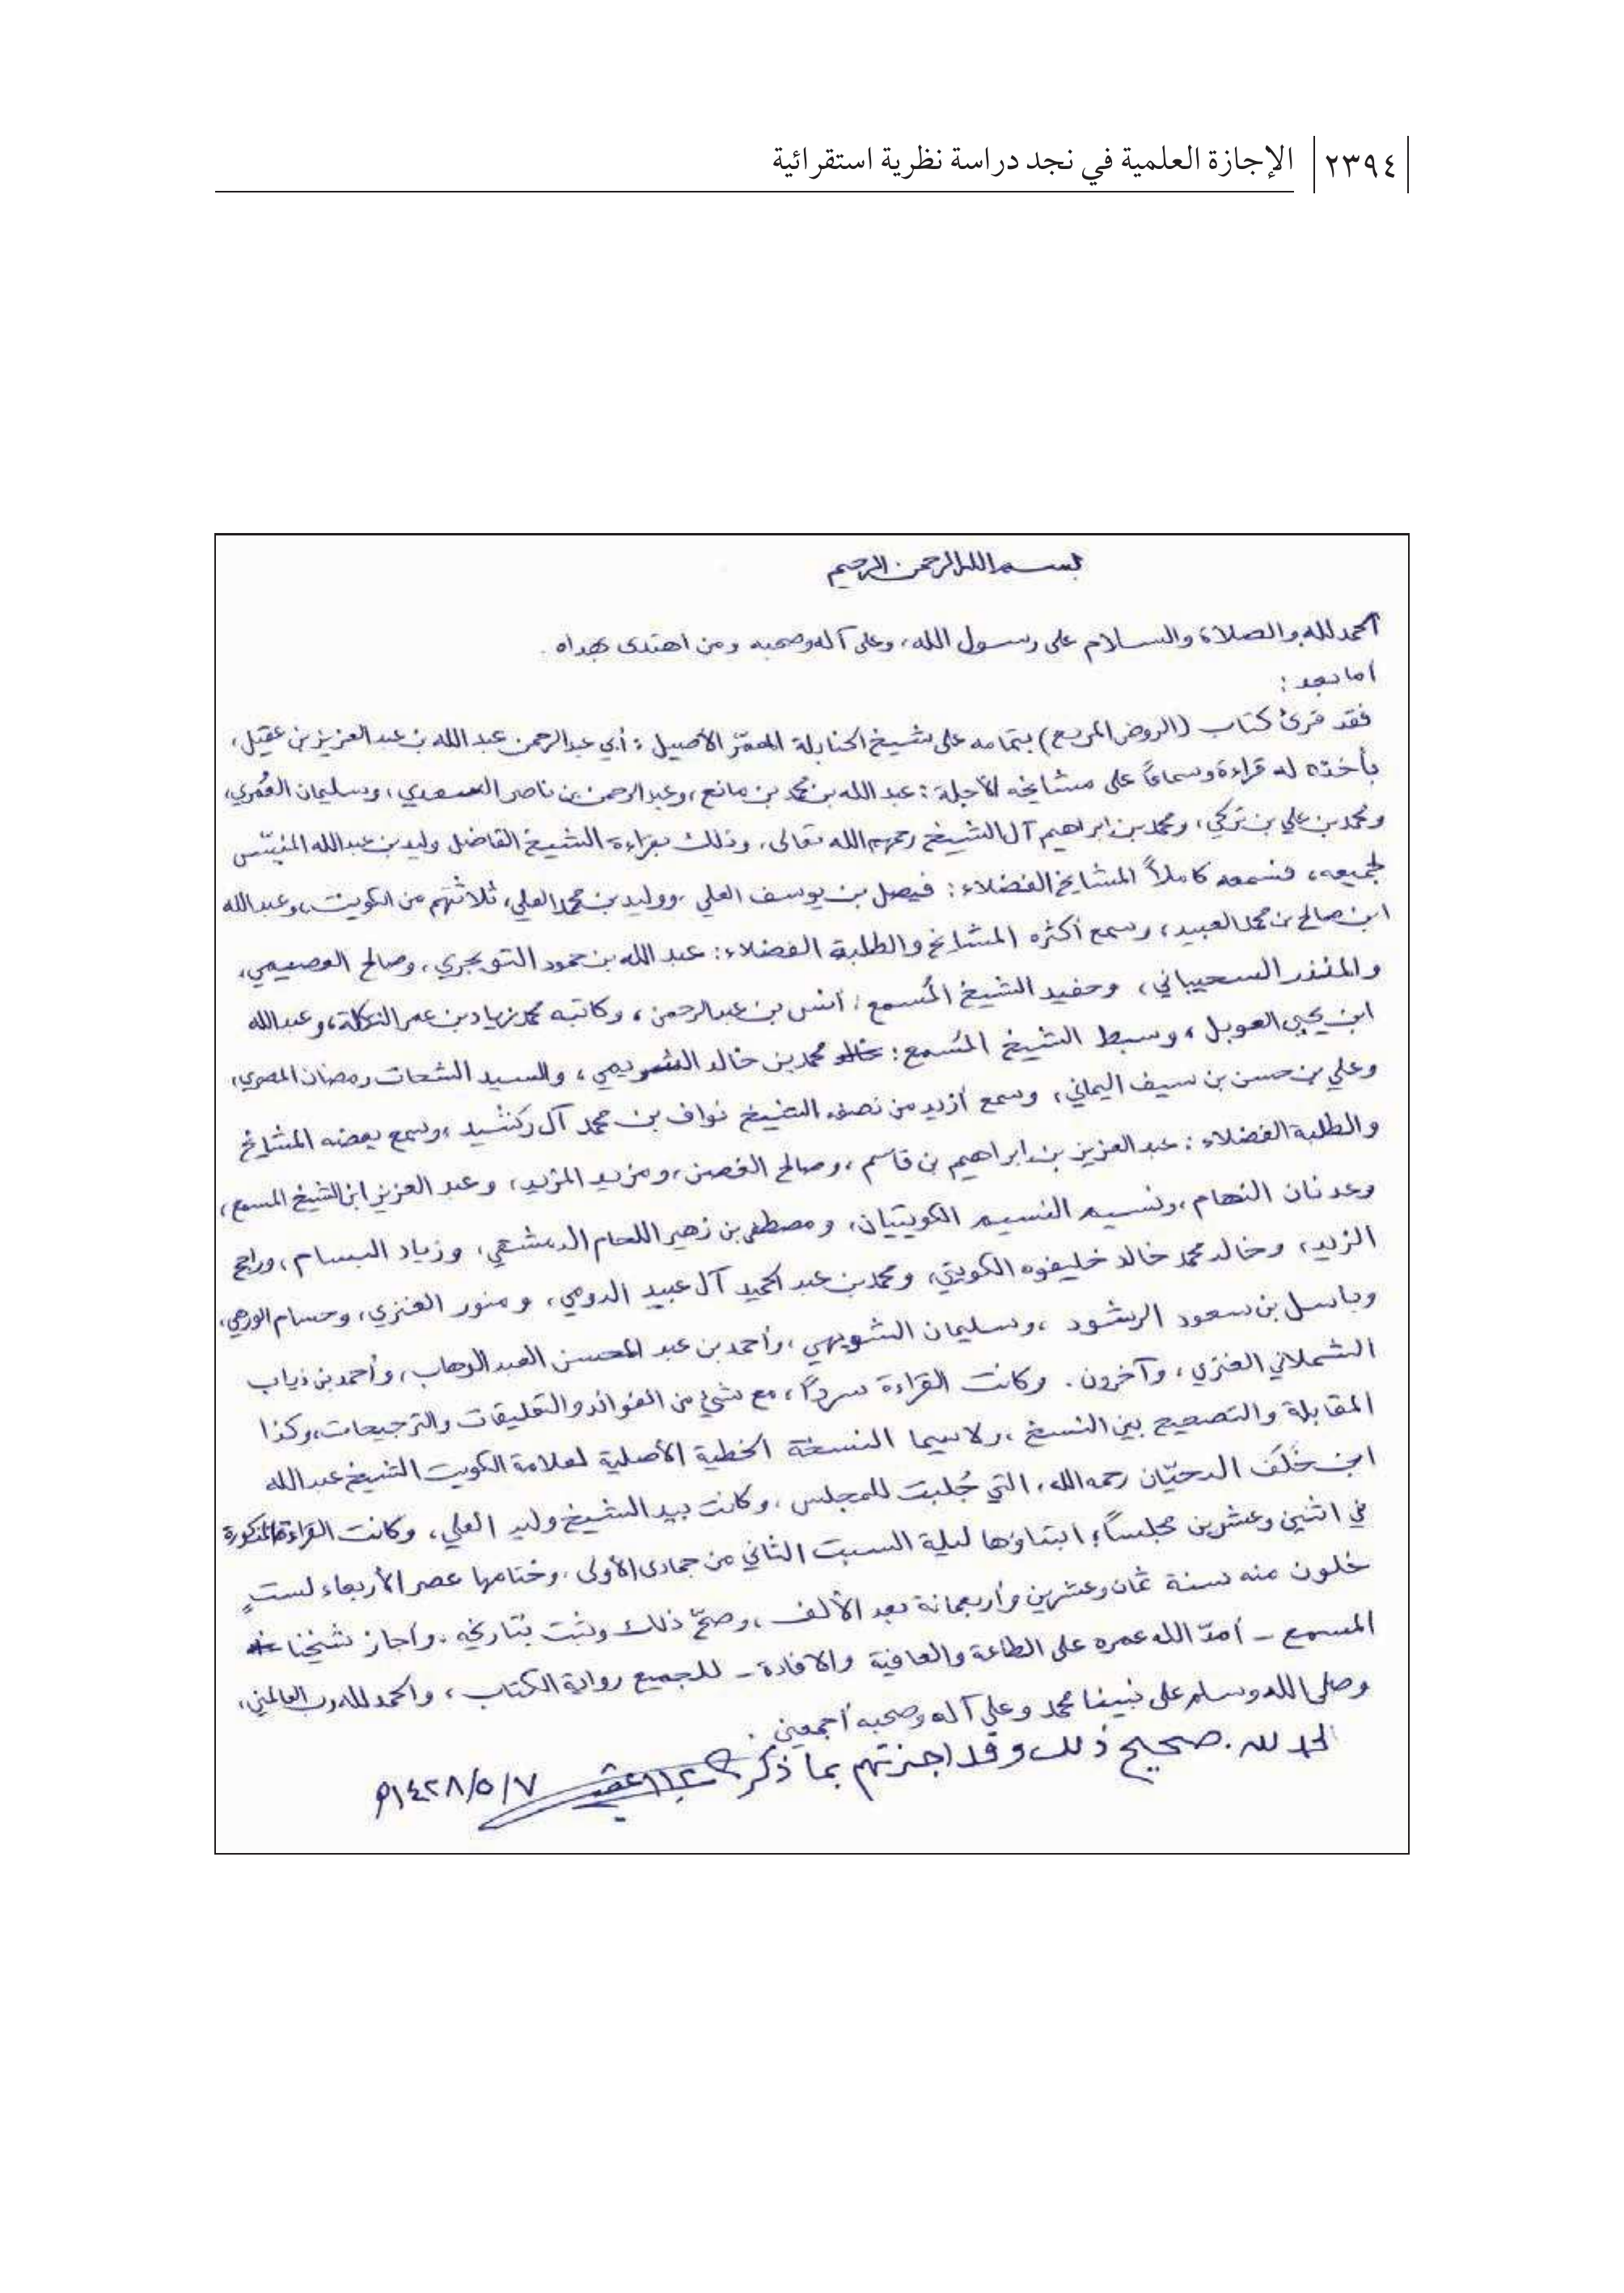 ٢٣٩٤ الإجازة العلمية في نجد دراسة نظرية استقرائية
بسم الله الرحمن الرحيم
الحمد لله والصلاة والسلام على رسول الله، وعلى آله وصحبه ومن اهتدى بهداه.
أما بعد:
فقد قرئ كتاب (الروض المربع) بتمامه على شيخ الحنابلة المعمّر الأصيل: أبي عبد الرحمن عبد الله بن عبد العزيز بن عقيل،
بأخذه له قراءة وسماعاً على مشايخه الأجلة: عبد الله بن محمد بن مانع، وعبد الرحمن بن ناصر السعدي، وسليمان العُمَري،
ومحمد بن علي بن تركي، ومحمد بن ابراهيم آل الشيخ رحمهم الله تعالى، وذلك بقراءة الشيخ الفاضل وليد بن عبد الله المنيّس
لجميعه، فسمعه كاملاً المشايخ الفضلاء: فيصل بن يوسف العلي، ووليد بن محمد العلي، ثلاثتهم من الكويت، وعبد الله
ابن صالح بن محمد العبيد، وسمع أكثره المشايخ والطلبة الفضلاء: عبد الله بن حمود التويجري، وصالح العصيمي،
والمنذر السحيباني، وحفيد الشيخ المُسمع: أنس بن عبد الرحمن، وكاتبه محمد زياد بن عمر التكلة، وعبد الله
ابن يحيى العوبل، وسبط الشيخ المُسمع: محمد بن خالد الشريمي، والسيد الشحات رمضان المصري،
وعلي بن حسن بن سيف اليماني، وسمع أزيد من نصفه الشيخ نواف بن محمد آل رشيد، وسمع بعضه المشايخ
والطلبة الفضلاء: عبد العزيز بن ابراهيم بن قاسم، وصالح الغصن، ومزيد المزيد، وعبد العزيز ابن الشيخ المسمع،
وعدنان النهام، ونسيم النسيم الكويتيان، ومصطفى بن زهير اللحام الدمشقي، وزياد البسام، وراجح
الزيد، وخالد محمد خالد خليفوه الكويتي، ومحمد بن عبد الحميد آل عبيد الدومي، ومنور العنزي، وحسام
وباسل بن سعود الرشود، وسليمان الشويهي، وأحمد بن عبد المحسن العبد الوهاب، وأحمد بن ذياب
الشملاني العنزي، وآخرون. وكانت القراءة سرداً، مع شيء من الفوائد والتعليقات والترجيحات، وكذا
المقابلة والتصحيح بين النسخ، ولاسيما النسخة الخطية الأصلية لعلامة الكويت الشيخ عبد الله
ابن خَلَف الدحيّان رحمه الله، التي جُلبت للمجلس، وكانت بيد الشيخ وليد العلي، وكانت القراءة المذكورة
في اثنين وعشرين مجلساً؛ ابتداؤها ليلة السبت الثاني من جمادى الأولى، وختامها عصر الأربعاء لستٍ
خلون منه سنة ثمان وعشرين وأربعمائة بعد الألف، وصحّ ذلك وثبت بتاريخه. وأجاز شيخنا
المسمع - أمدّ الله عمره على الطاعة والعافية والافادة - للجميع رواية الكتاب، والحمد لله رب العالمين،
وصلى الله وسلم على نبينا محمد وعلى آله وصحبه أجمعين.
الحمد لله. صحيح ذلك وقد اجزتهم بما ذكر
١٤٢٨/٥/٧هـ